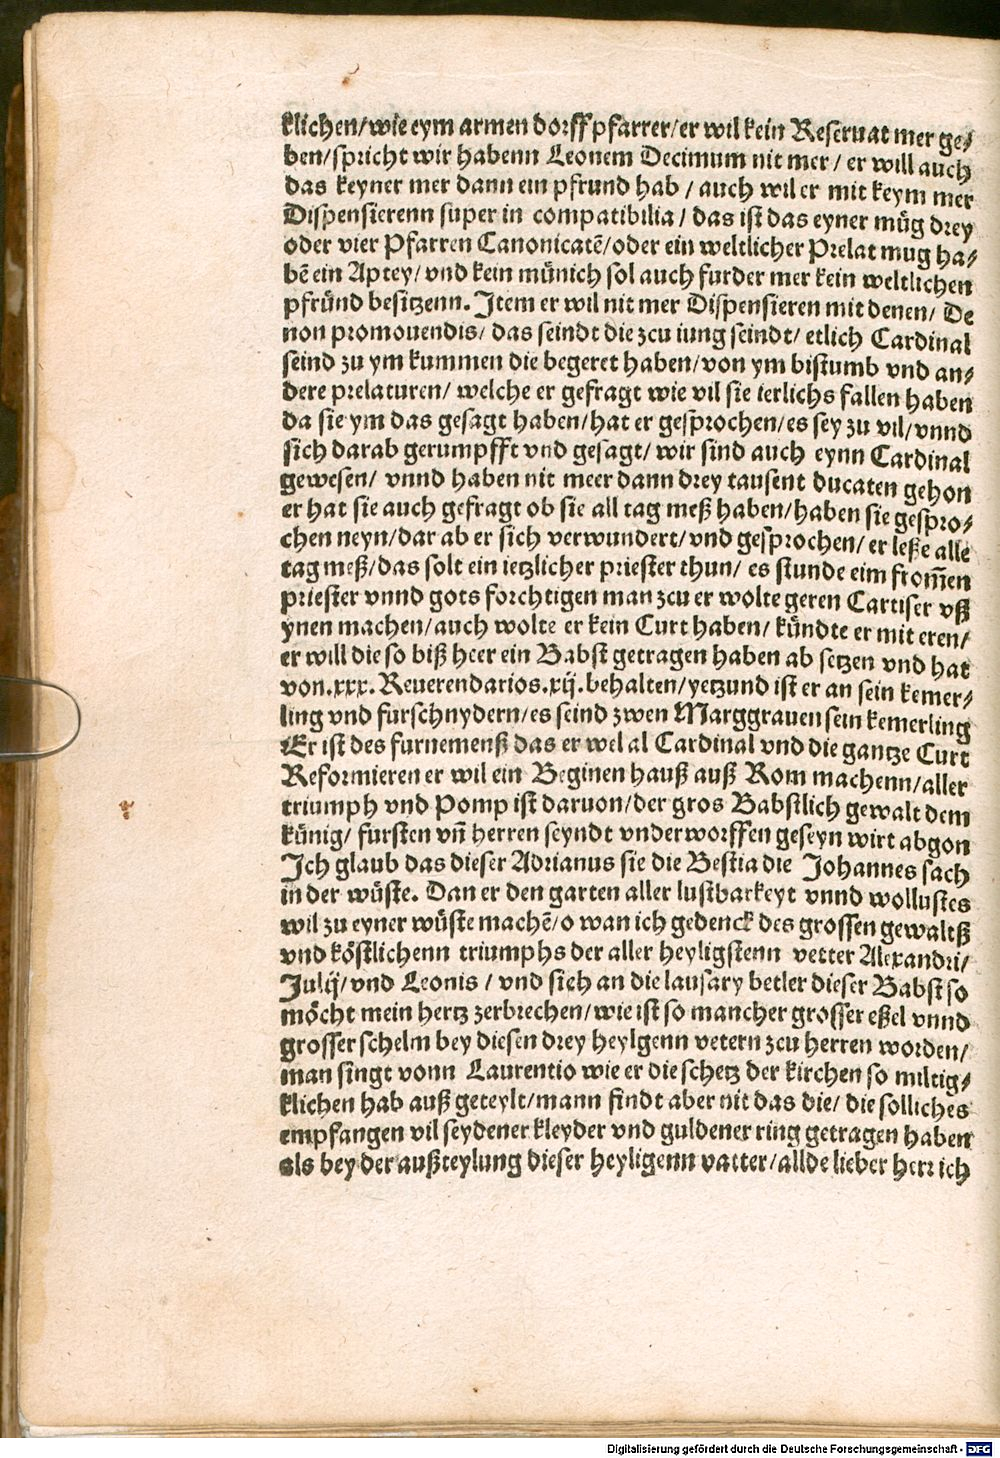 klichen/wie eym armen dorffpfarrer/er wil kein Reseruat mer ge/
ben/spricht wir habenn Leonem Decimum nit mer/ er will auch
das keyner mer dann ein pfrund hab / auch wil er mit keym mer
Dispensierenn super in compatibilia / das ist das eyner müg drey
oder vier Pfarren Canonicatē/oder ein weltlicher Prelat mug ha/
bē ein Aptey/ vnd kein münich sol auch furder mer kein weltlichen
pfründ besitzenn. Item er wil nit mer Dispensieren mit denen/ De
non promouendis/ das seindt die zcu iung seindt/ etlich Cardinal
seind zu ym kummen die begeret haben/von ym bistumb vnd an/
dere prelaturen/ welche er gefragt wie vil sie ierlichs fallen haben
da sie ym das gesagt haben/hat er gesprochen/es sey zu vil/vnnd
sich darab gerumpfft vnd gesagt/ wir sind auch eynn Cardinal
gewesen/ vnnd haben nit meer dann drey tausent ducaten gehon
er hat sie auch gefragt ob sie all tag meß haben/haben sie gespro/
chen neyn/dar ab er sich verwundert/vnd gesprochen/ er leße alle
tag meß/das solt ein ietzlicher priester thun/ es stunde eim from̄en
priester vnnd gots forchtigen man zcu er wolte geren Cartiser vß
ynen machen/auch wolte er kein Curt haben/ kündte er mit eren/
er will die so biß heer ein Babst getragen haben ab setzen vnd hat
von.xxx. Reuerendarios.xij.behalten/yetzund ist er an sein kemer/
ling vnd furschnydern/es seind zwen Marggrauen sein kemerling
Er ist des furnemenß das er wel al Cardinal vnd die gantze Curt
Reformieren er wil ein Beginen hauß auß Rom machenn/aller
triumph vnd Pomp ist daruon/der gros Babstlich gewalt dem
künig/ fursten vn̄ herren seyndt vnderworffen geseyn wirt abgon
Ich glaub das dieser Adrianus sie die Bestia die Johannes sach
in der wüste. Dan er den garten aller lustbarkeyt vnnd wollustes
wil zu eyner wüste machē/o wan ich gedenck des grossen gewaltß
vnd köstlichenn triumphs der aller heyligstenn vetter Alexandri/
Julij/vnd Leonis / vnd sich an die lausary betler dieser Babst so
möcht mein hertz zerbrechen/wie ist so mancher grosser eßel vnnd
grosser schelm bey diesen drey heylgenn vetern zcu herren worden/
man singt vonn Laurentio wie er die schetz der kirchen so miltig/
klichen hab auß geteylt/mann findt aber nit das die/ die solliches
empfangen vil seydener kleyder vnd guldener ring getragen haben
als bey der außteylung dieser heyligenn vatter/allde lieber herr ich
Digitalisierung gefördert durch die Deutsche Forschungsgemeinschaft - DFG